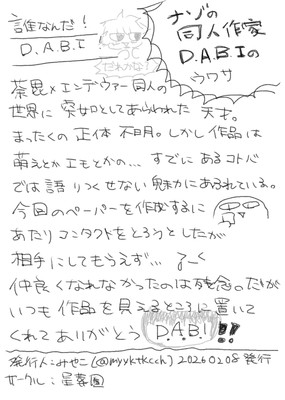 誰なんだ!
D.A.B.I
くだれかな
ナゾの
同人作家
D.A.B.Iの
ウワサ
荼毘×エンデヴァー同人の
世界に 突如としてあらわれた 天才。
まったくの 正体 不明。しかし 作品は
萌えとか エモとかの… すでに あるコトバ
では 語りつくせない 魅力にあふれている。
今回のペーパーを作成するに
あたり コンタクトをとろうとしたが
相手にしてもらえず…
仲良くなれなかったのは残念。だが
いつも 作品を 見えるところに 置いて
くれて ありがとう D.A.B.I!!
発行人:みやこ(@myyktkcch) 20260208発行
サークル:星葬園